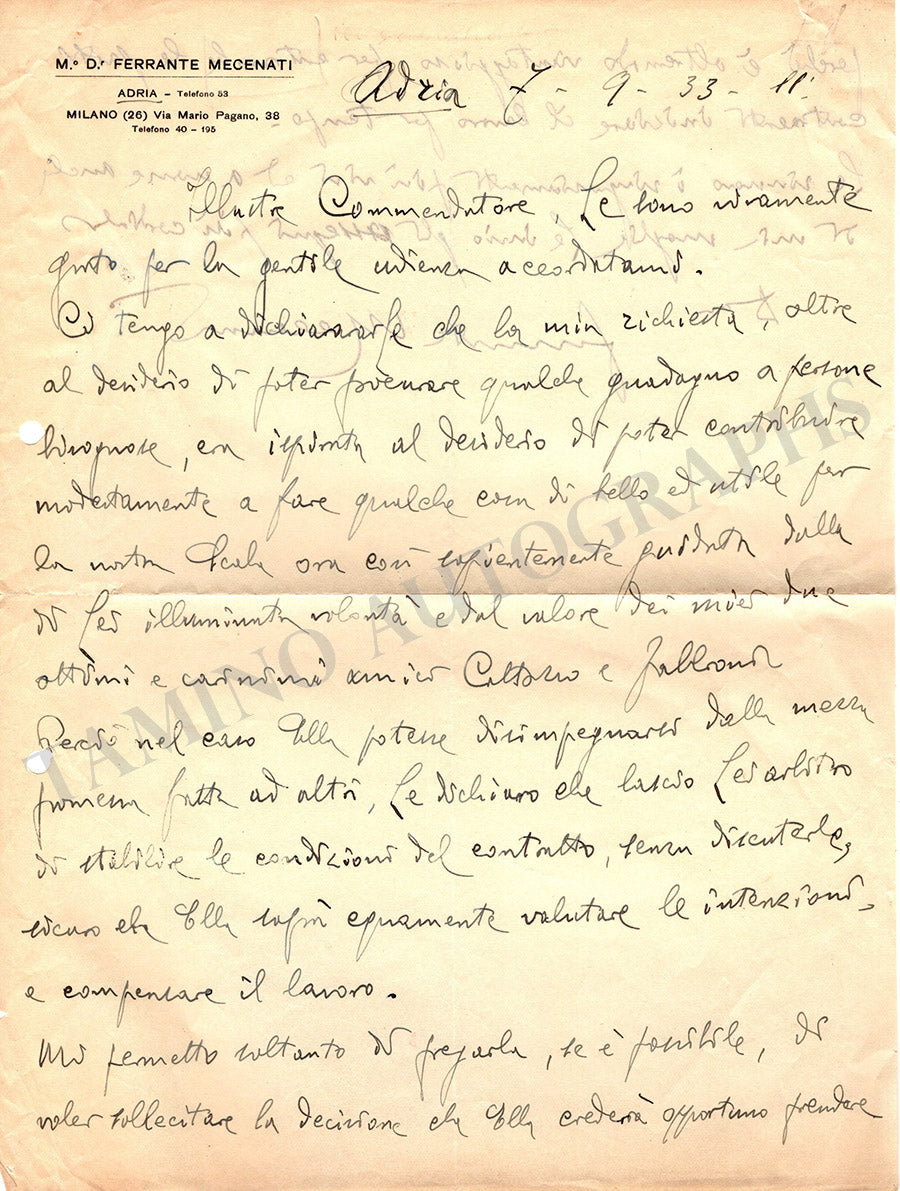 M.o D.r FERRANTE MECENATI
ADRIA – Telefono 53
MILANO (26) Via Mario Pagano, 38
Telefono 40 - 195
Adria 7 - 9 - 33 - 11.
Illustre Commendatore, Le sono vivamente
grato per la gentile udienza accordatami.
Ci tengo a dichiararLe che la mia richiesta, oltre
al desiderio di poter procurare qualche guadagno a persone
bisognose, era ispirata al desiderio di poter contribuire
modestamente a fare qualche cosa di bello ed utile per
la nostra Scala ora così sapientemente guidata dalla
di Lei illuminata volontà e dal valore dei miei due
ottimi e carissimi amici e Fabbroni
Perciò nel caso Ella potesse disimpegnarsi dalla mezza
promessa fatta ad altri, Le dichiaro che lascio Lei arbitro
di stabilire le condizioni del contratto, senza discuterle,
sicuro che Ella saprà equamente valutare le intenzioni,
e compensare il lavoro.
Mi permetto soltanto di pregarla, se è possibile, di
voler sollecitare la decisione che Ella crederà opportuno prendere
TAMINO AUTOGRAPHS